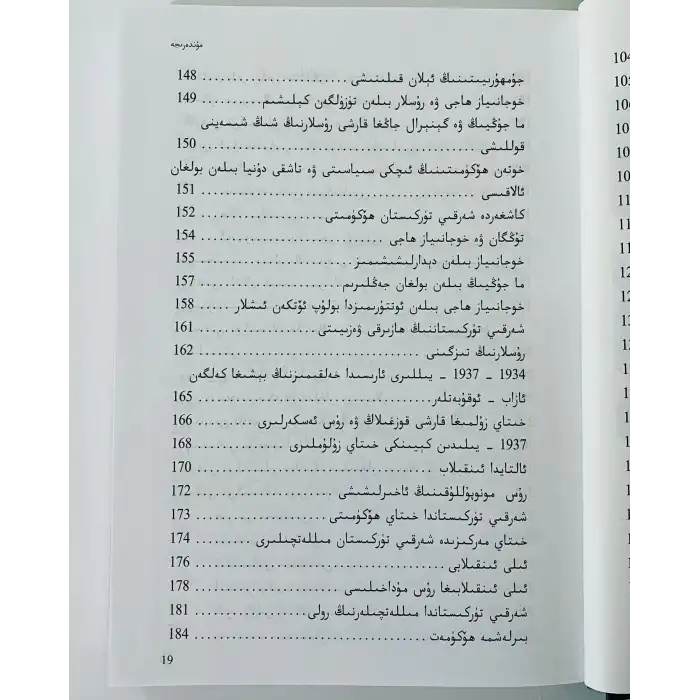 مۇندەرىجە
جۇمھۇرىيىتىنىڭ ئېلان قىلىنىشى ........................ 148
خوجانىياز ھاجى ۋە رۇسلار بىلەن تۈزۈلگەن كېلىشىم............ 149
ما جۇڭيىڭ ۋە گېنېرال جاڭغا قارشى رۇسلارنىڭ شىڭ شىسەينى
قوللىشى ........................................ 150
خوتەن ھۆكۈمىتىنىڭ ئىچكى سىياسىتى ۋە تاشقى دۇنيا بىلەن بولغان
ئالاقىسى ........................................ 151
كاشغەردە شەرقىي تۈركىستان ھۆكۈمىتى..................... 152
تۇڭگان ۋە خوجانىياز ھاجى ........................... 154
خوجانىياز بىلەن دىدارلىشىشىمىز........................ 155
ما جۇڭيىڭ بىلەن بولغان جەڭلىرىم....................... 157
خوجانىياز ھاجى بىلەن ئوتتۇرىمىزدا بولۇپ ئۆتكەن ئىشلار ..... 158
شەرقىي تۈركىستاننىڭ ھازىرقى ۋەزىيىتى................... 161
رۇسلارنىڭ تىزگىنى ................................. 162
1934 - 1937 - يىللىرى ئارىسدا خەلقىمىزنىڭ بېشىغا كەلگەن
ئازاب - ئوقۇبەتلەر................................. 165
خىتاي زۇلمىغا قارشى قوزغىلاڭ ۋە رۇس ئەسكەرلىرى ........... 166
1937 - يىلىدىن كېيىنكى خىتاي زۇلۇملىرى ................. 168
ئالتايدا ئىنقىلاب ................................. 170
رۇس مونوپوللۇقىنىڭ ئاخىرلىشىشى ....................... 172
شەرقىي تۈركىستاندا خىتاي ھۆكۈمىتى..................... 173
خىتاي مەركىزىدە شەرقىي تۈركىستان مىللەتچىلىرى ............ 174
ئىلى ئىنقىلابى .................................... 176
ئىلى ئىنقىلابىغا رۇس مۇداخىلىسى ....................... 178
شەرقىي تۈركىستاندا مىللەتچىلەرنىڭ رولى.................. 181
بىرلەشمە ھۆكۈمەت .................................. 184
19